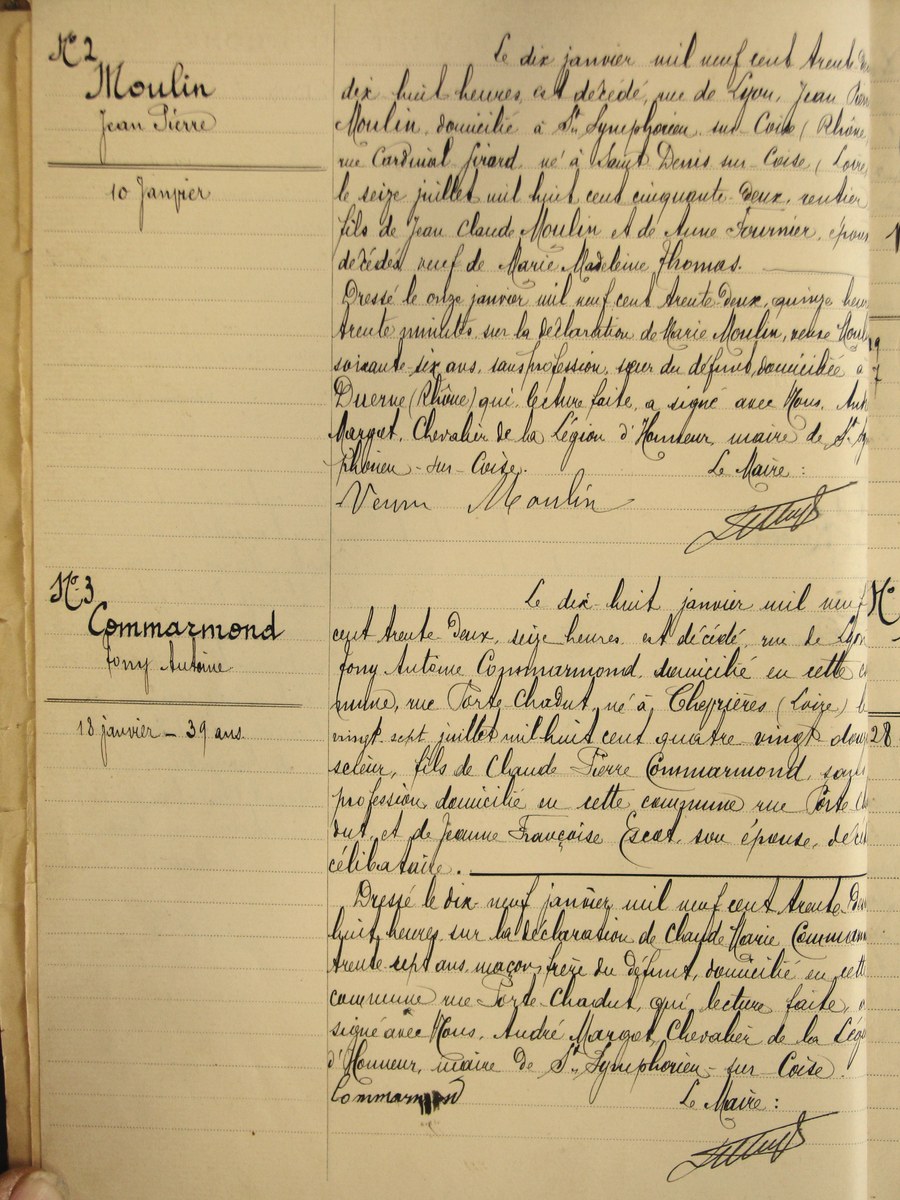 N° 2
Moulin
Jean Pierre
10 Janvier
Le dix janvier mil neuf cent trente d
dix huit heures, est décédé, rue de Lyon, Jean Pier
Moulin, domicilié à St Symphorien sur Coise (Rhône
rue Cardinal Girard né à Saint Denis sur Coise (Loire
le seize juillet mil huit cent cinquante deux, rentier
fils de Jean Claude Moulin et de Anne Fournier, épou
décédés, veuf de Marie Madeleine Thomas.
Dressé le onze janvier mil neuf cent trente deux, quinze heu
trente minutes sur la déclaration de Marie Moulin, veuve Moul
soixante six ans, sans profession, sœur du défunt, domiciliée à
Duerne (Rhône) qui, lecture faite, a signé avec Nous, And
Margot, Chevalier de la Légion d'Honneur, maire de St Sy
phorien - sur - Coise.
Le Maire :
Moulin
N° 3
Commarmond
Tony Antoine
18 janvier - 39 ans
Le dix huit janvier mil neuf
cent trente deux, seize heures est décédé, rue de Lyon
Tony Antoine Commarmond, domicilié en cette c
mune, rue Porte Chadut, né à Chevrières (Loire) le
vingt sept juillet mil huit cent quatre vingt douz
scieur, fils de Claude Pierre Commarmond, sans
profession domicilié en cette commune rue Porte C
dut, et de Jeanne Françoise Escot, son épouse, décé
célibataire.
Dressé le dix neuf janvier mil neuf cent trente deu
huit heures sur la déclaration de Claude Marie Commarm
trente sept ans, maçon, frère du défunt, domicilié en cett
commune rue Porte Chadut, qui, lecture faite, a
signé avec Nous, André Margot, Chevalier de la Lég
d'Honneur, maire de St Symphorien - sur Coise.
Le Maire :
Commarmond
N°
28